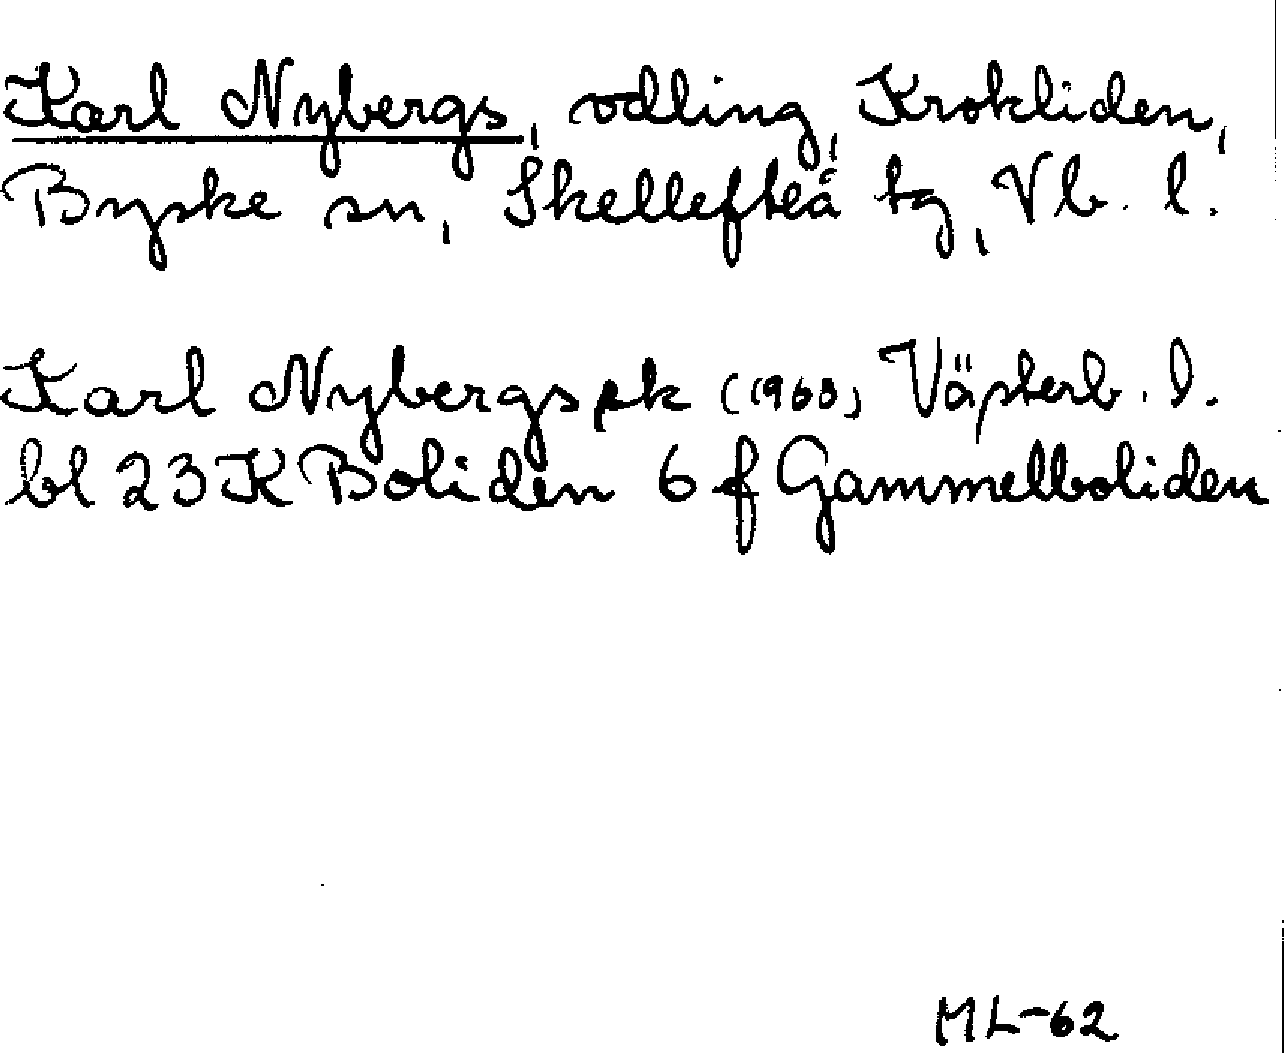 Karl Nybergs, odling, Krokliden,
Byske sn, Skellefteå tg, Vb. l.
Karl Nybergs ek (1960) Västerb. l.
bl 23 K Boliden 6 f Gammelboliden
ML-62